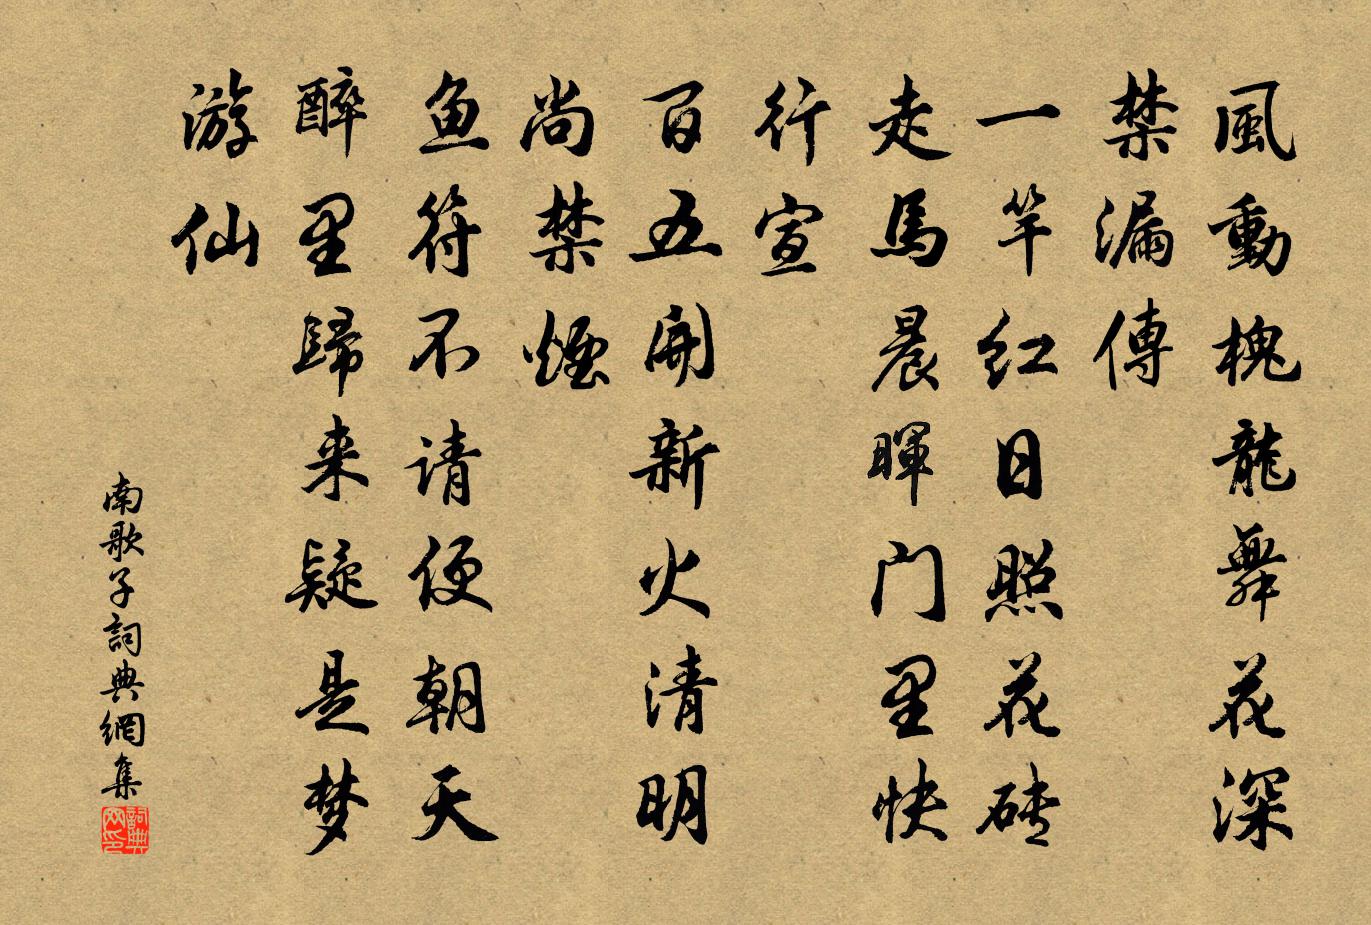 風動槐龍舞花深
禁漏傳
一竿红日照花砖
走馬晨暉门里快
行宣
百五開新火清明
尚禁煙
鱼符不请便朝天
醉里歸来疑是梦
游仙
南歌子詞典網集
詞典网印